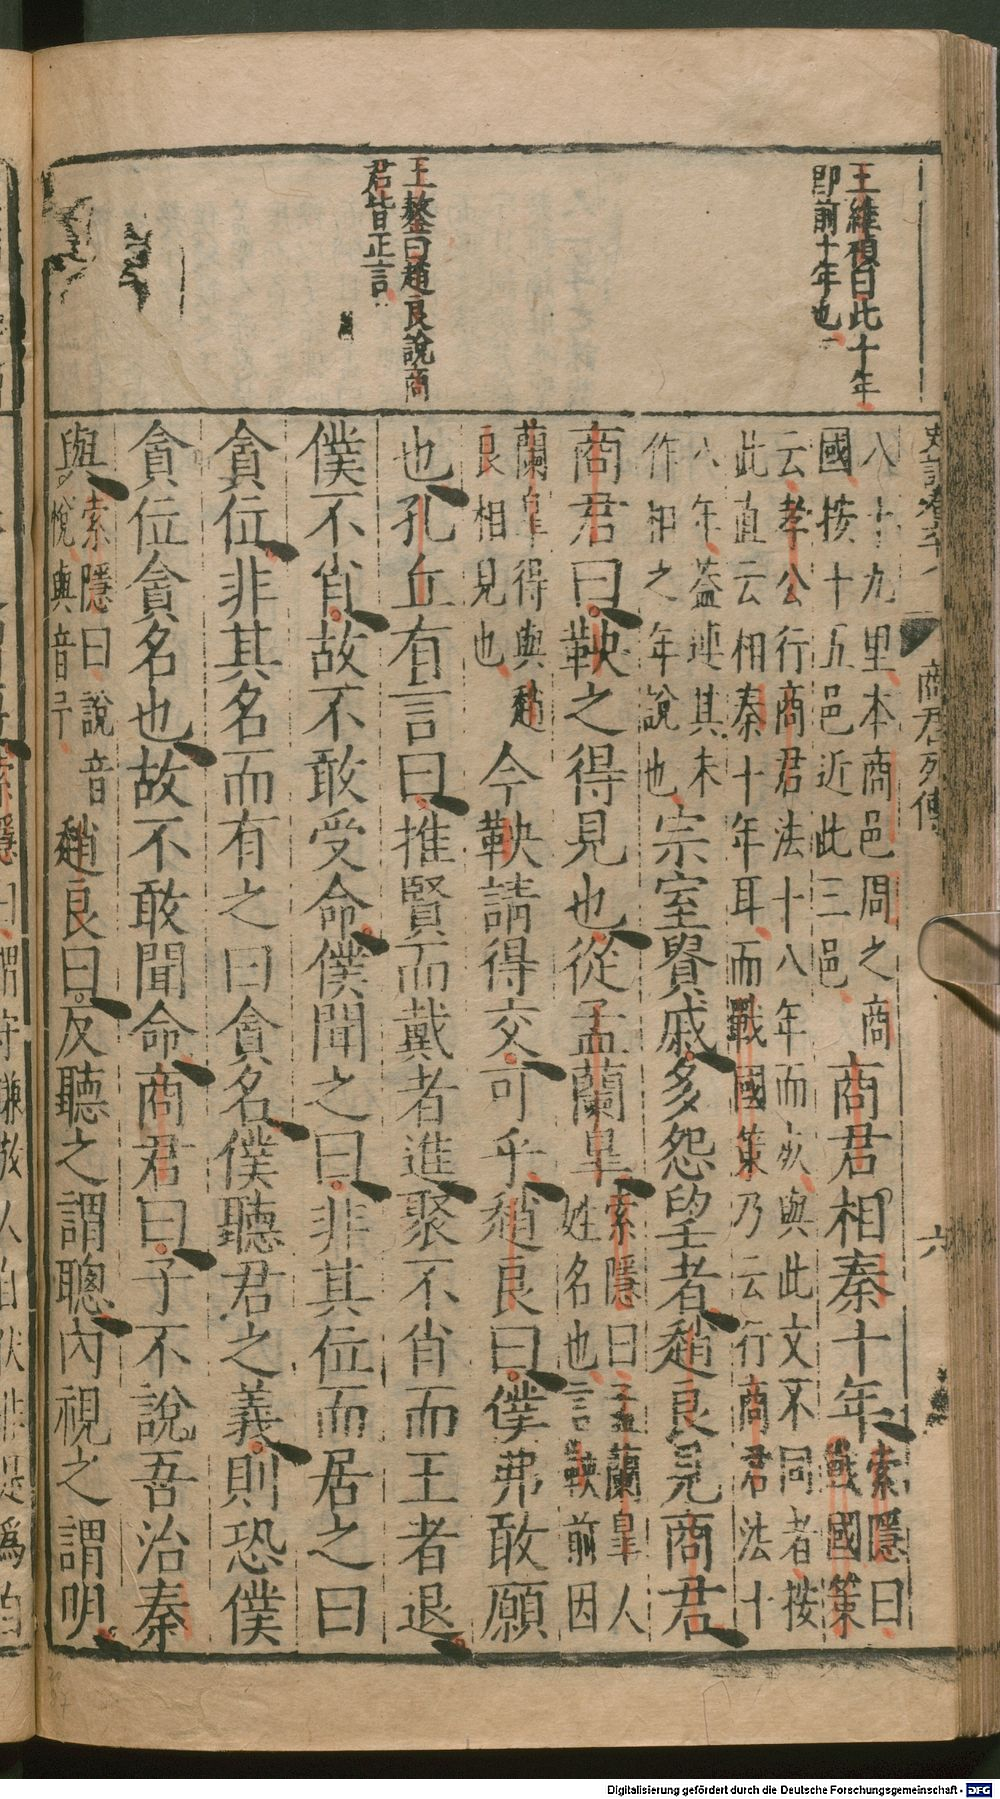 王維楨曰此十年
即前十年也
王鏊曰趙良說商
君皆正言
史記卷六十八　商君列傳　六
八十九里本商邑周之商
國按十五邑近此三邑
商君相秦十年
索隱曰
戰國策
云孝公行商君法十八年而死與此文不同者按
此直云相秦十年耳而戰國策乃云行商君法十
八年蓋連其未
作相之年說也
宗室貴戚多怨望者趙良見商君
商君曰鞅之得見也從孟蘭臯
索隱曰孟蘭臯人
姓名也言鞅前因
蘭臯得與趙
良相見也
今鞅請得交可乎趙良曰僕弗敢願
也孔丘有言曰推賢而戴者進聚不肖而王者退
僕不肖故不敢受命僕聞之曰非其位而居之曰
貪位非其名而有之曰貪名僕聽君之義則恐僕
貪位貪名也故不敢聞命商君曰子不說吾治秦
與
索隱曰說音
悅與音予
趙良曰反聽之謂聰內視之謂明
索隱曰謂守謙敬人自伏非是爲自
Digitalisierung gefördert durch die Deutsche Forschungsgemeinschaft - DFG